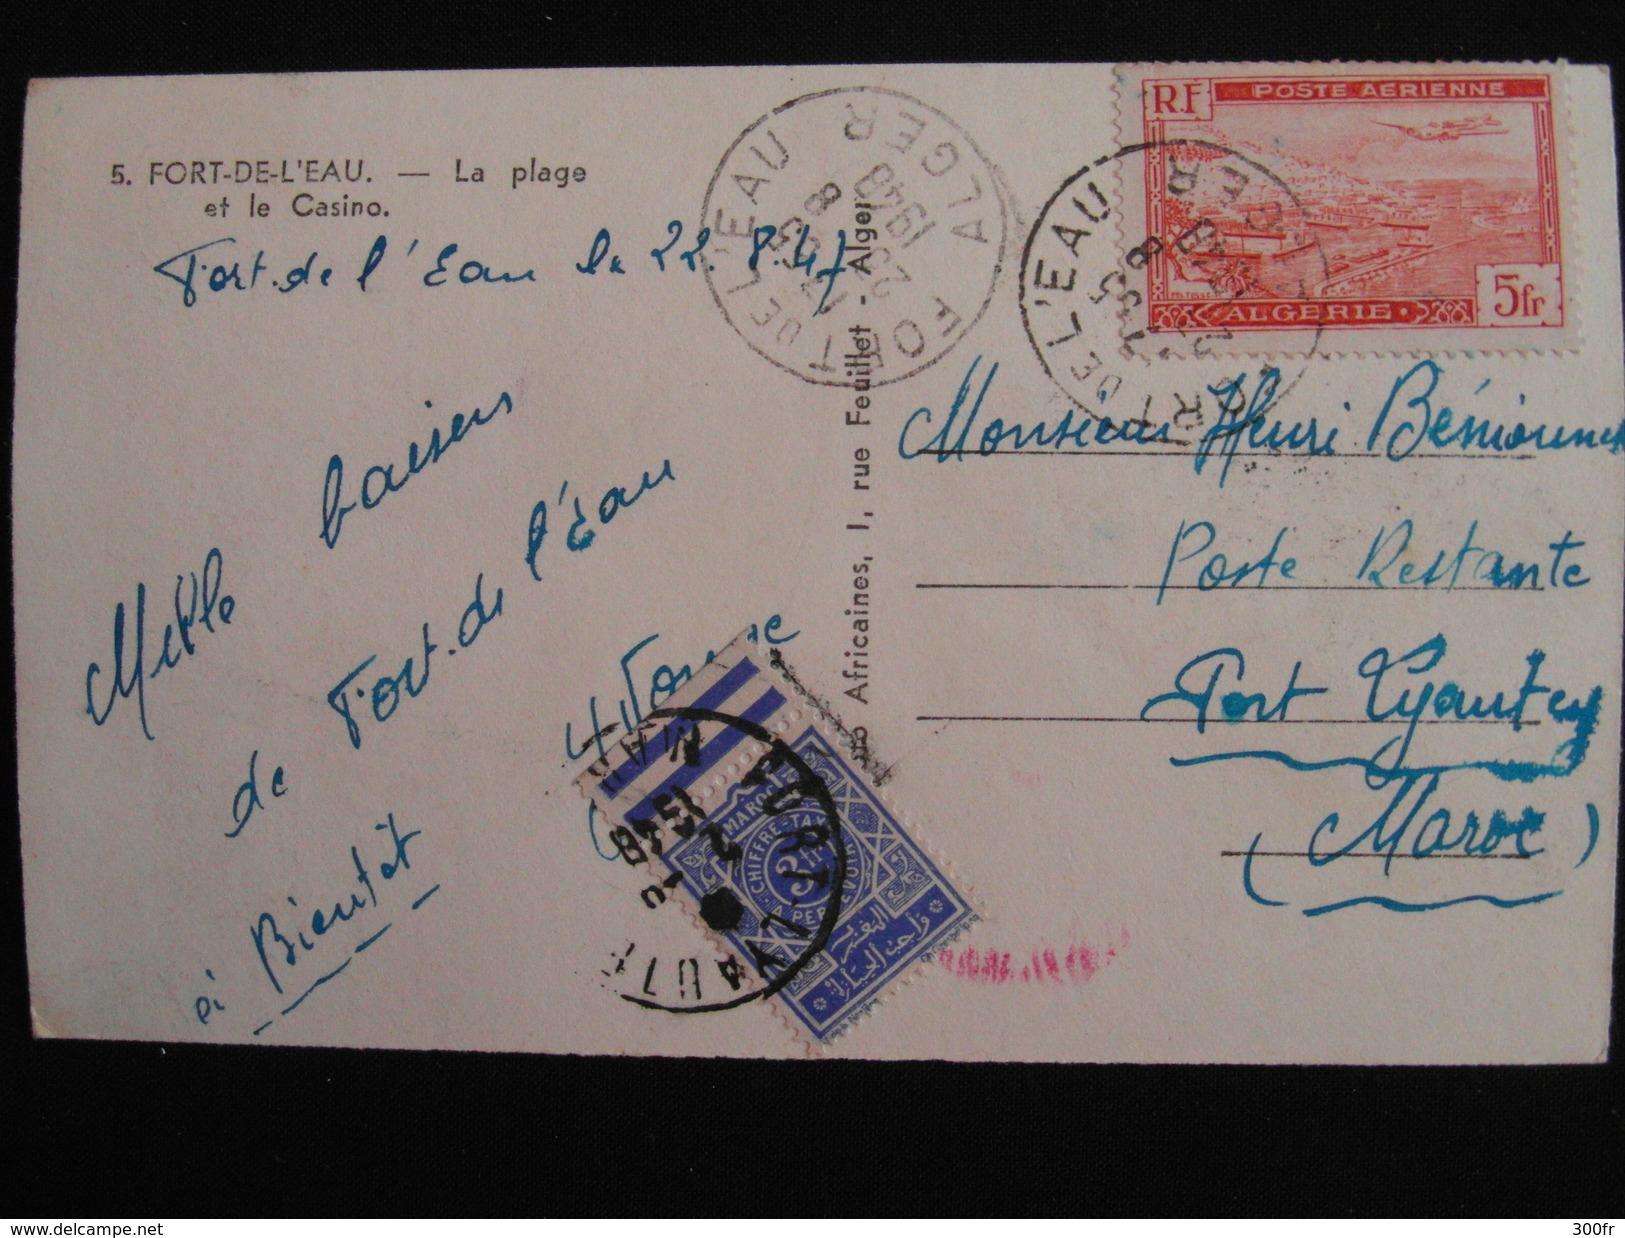 5. FORT-DE-L'EAU. — La plage
et le Casino.
Fort.de l'Eau le 22.8.47
Mille baisers
de Fort.de l'Eau
à Bientôt
Africaines, 1, rue Feuillet - Alger
FORT DE L'EAU ALGER
17 35
23 8
1948
RF POSTE AERIENNE
5fr
ALGERIE
FORT DE L'EAU
Monsieur Henri
Poste Restante
Port Lyautey
(Maroc)
MAROC
CHIFFRE-TAXE
3fr
A PERCEVOIR
PORT-LYAUTEY
MAROC
delcampe.net
300fr